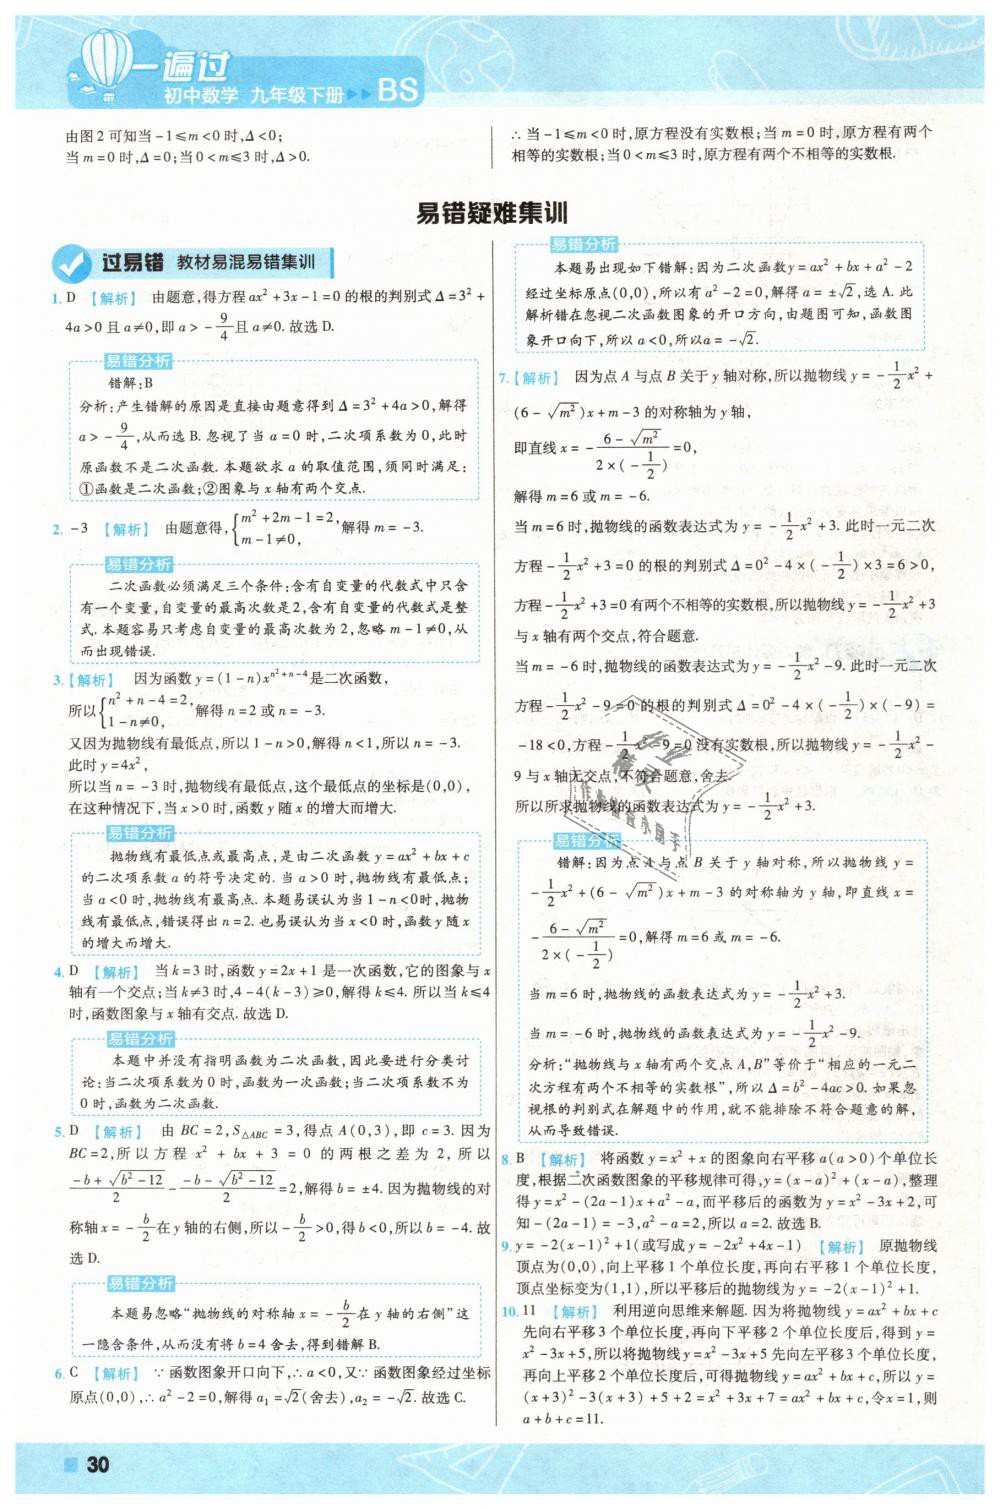 一遍过
初中数学 九年级下册 BS
由图2可知当-1≤m<0时,Δ<0;
当m=0时,Δ=0;当0<m≤3时,Δ>0.
∴当-1≤m<0时,原方程没有实数根;当m=0时,原方程有两个
相等的实数根;当0<m≤3时,原方程有两个不相等的实数根.
易错疑难集训
过易错 教材易混易错集训
1. D 【解析】 由题意,得方程ax²+3x-1=0的根的判别式Δ=3²+
4a>0且a≠0,即a>-9/4且a≠0.故选D.
易错分析
错解:B
分析:产生错解的原因是直接由题意得到Δ=3²+4a>0,解得
a>-9/4,从而选B.忽视了当a=0时,二次项系数为0,此时
原函数不是二次函数.本题欲求a的取值范围,须同时满足:
①函数是二次函数;②图象与x轴有两个交点.
2. -3 【解析】 由题意得,{m²+2m-1=2, m-1≠0, 解得m=-3.
易错分析
二次函数必须满足三个条件:含有自变量的代数式中只含
有一个变量,自变量的最高次数是2,含有自变量的代数式是整
式.本题容易只考虑自变量的最高次数为2,忽略m-1≠0,从
而出现错误.
3.【解析】 因为函数y=(1-n)x^{n²+n-4}是二次函数,
所以{n²+n-4=2, 1-n≠0, 解得n=2或n=-3.
又因为抛物线有最低点,所以1-n>0,解得n<1,所以n=-3.
此时y=4x²,
所以当n=-3时,抛物线有最低点,这个最低点的坐标是(0,0),
在这种情况下,当x>0时,函数y随x的增大而增大.
易错分析
抛物线有最低点或最高点,是由二次函数y=ax²+bx+c
的二次项系数a的符号决定的.当a>0时,抛物线有最低点;
当a<0时,抛物线有最高点.本题易误认为当1-n<0时,抛物
线有最低点,错误得出n=2.也易误认为当x<0时,函数y随x
的增大而增大.
4. D 【解析】 当k=3时,函数y=2x+1是一次函数,它的图象与x
轴有一个交点;当k≠3时,4-4(k-3)≥0,解得k≤4.所以当k≤4
时,函数图象与x轴有交点.故选D.
易错分析
本题中并没有指明函数为二次函数,因此要进行分类讨
论:当二次项系数为0时,函数为一次函数;当二次项系数不为
0时,函数为二次函数.
5. D 【解析】 由BC=2,S△ABC=3,得点A(0,3),即c=3.因为
BC=2,所以方程x²+bx+3=0的两根之差为2,所以
(-b+√(b²-12))/2-(-b-√(b²-12))/2=2,解得b=±4.因为抛物线的对
称轴x=-b/2在y轴的右侧,所以-b/2>0,得b<0,所以b=-4.故
选D.
易错分析
本题易忽略“抛物线的对称轴x=-b/2在y轴的右侧”这
一隐含条件,从而没有将b=4舍去,得到错解B.
6. C 【解析】 ∵函数图象开口向下,∴a<0,又∵函数图象经过坐标
原点(0,0),∴a²-2=0,解得a₁=√2(舍去),a₂=-√2.故选C.
易错分析
本题易出现如下错解:因为二次函数y=ax²+bx+a²-2
经过坐标原点(0,0),所以有a²-2=0,解得a=±√2,选A.此
解析错在忽视二次函数图象的开口方向,由题图可知,函数图
象开口向下,所以a<0,所以a=-√2.
7.【解析】 因为点A与点B关于y轴对称,所以抛物线y=-1/2x²+
(6-√m²)x+m-3的对称轴为y轴,
即直线x=-(6-√m²)/(2×(-1/2))=0,
解得m=6或m=-6.
当m=6时,抛物线的函数表达式为y=-1/2x²+3.此时一元二次
方程-1/2x²+3=0的根的判别式Δ=0²-4×(-1/2)×3=6>0,
方程-1/2x²+3=0有两个不相等的实数根,所以抛物线y=-1/2x²+3
与x轴有两个交点,符合题意.
当m=-6时,抛物线的函数表达式为y=-1/2x²-9.此时一元二次
方程-1/2x²-9=0的根的判别式Δ=0²-4×(-1/2)×(-9)=
-18<0,方程-1/2x²-9=0没有实数根,所以抛物线y=-1/2x²-
9与x轴无交点,不符合题意,舍去.
所以所求抛物线的函数表达式为y=-1/2x²+3.
易错分析
错解:因为点A与点B关于y轴对称,所以抛物线y=
-1/2x²+(6-√m²)x+m-3的对称轴为y轴,即直线x=
-(6-√m²)/(2×(-1/2))=0,解得m=6或m=-6.
当m=6时,抛物线的函数表达式为y=-1/2x²+3.
当m=-6时,抛物线的函数表达式为y=-1/2x²-9.
分析:“抛物线与x轴有两个交点A,B”等价于“相应的一元二
次方程有两个不相等的实数根”,所以Δ=b²-4ac>0.如果忽
视根的判别式在解题中的作用,就不能排除不符合题意的解,
从而导致错误.
8. B 【解析】 将函数y=x²+x的图象向右平移a(a>0)个单位长
度,根据二次函数图象的平移规律可得,y=(x-a)²+(x-a),整理
得y=x²-(2a-1)x+a²-a,而平移后的函数为y=x²-3x+2,可
知-(2a-1)=-3,a²-a=2,所以a=2.故选B.
9. y=-2(x-1)²+1(或写成y=-2x²+4x-1) 【解析】 原抛物线
顶点为(0,0),向上平移1个单位长度,再向右平移1个单位长度,
顶点坐标变为(1,1),所以平移后的抛物线为y=-2(x-1)²+1.
10. 11 【解析】 利用逆向思维来解题.因为将抛物线y=ax²+bx+c
先向右平移3个单位长度,再向下平移2个单位长度后,得到y=
x²-3x+5,所以将抛物线y=x²-3x+5先向左平移3个单位长度,
再向上平移2个单位长度后,可得抛物线y=ax²+bx+c,所以y=
(x+3)²-3(x+3)+5+2=x²+3x+7=ax²+bx+c,令x=1,则
a+b+c=11.
30